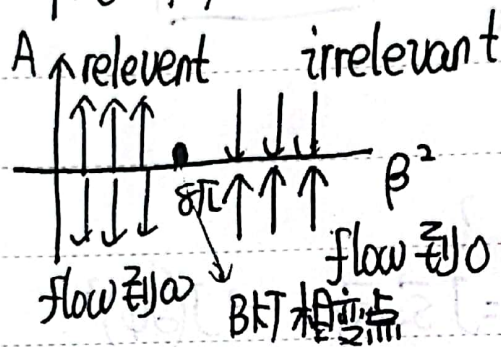 A relevent irrelevant
β²
8π
flow到∞ flow到0
BKT相变点